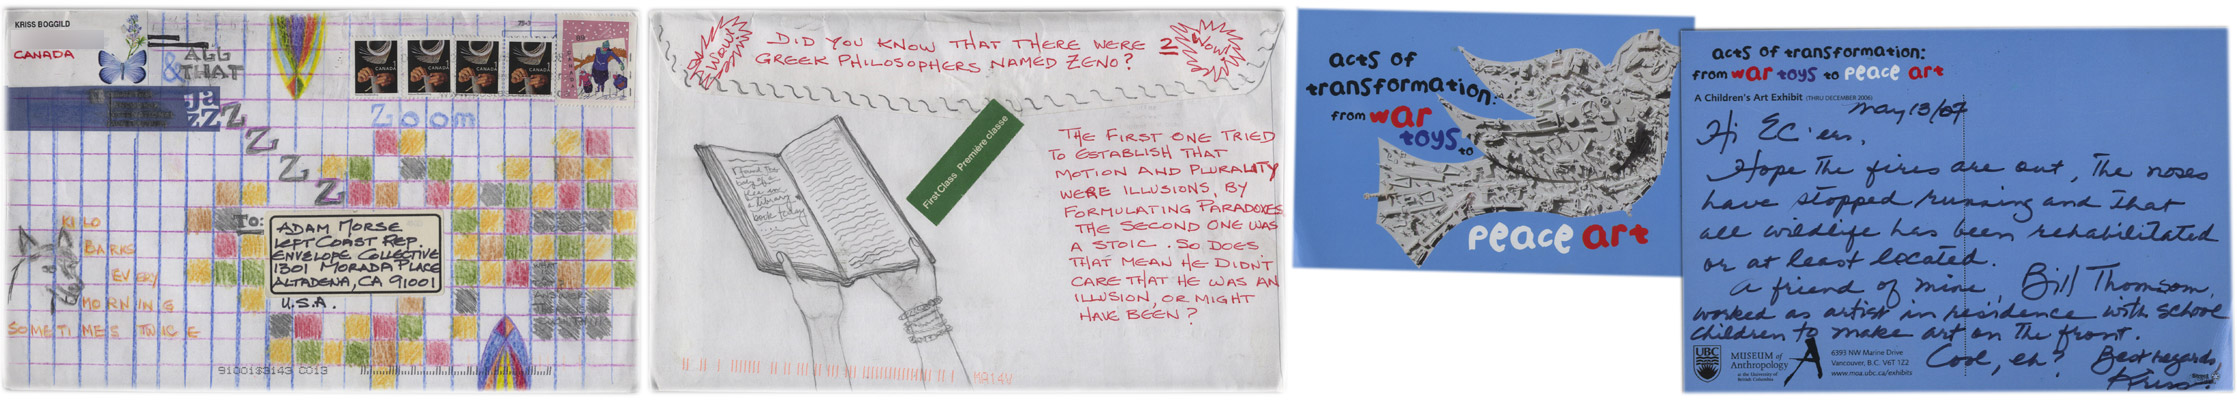 KRISS BOGGILD
CANADA
& ALL
THAT
JAZZ
Z
Z
Z
Z
Zoom
75-3
CANADA
CANADA
CANADA
CANADA
89
To:
ADAM MORSE
LEFT COAST REP.
ENVELOPE COLLECTIVE
1301 MORADA PLACE
ALTADENA, CA 91001
U.S.A.
KILO
BARKS
EVERY
MORNING
SOMETIMES TWICE
DID YOU KNOW THAT THERE WERE 2
GREEK PHILOSOPHERS NAMED ZENO?
Wow!
Wow!
First Class Première classe
I found the
body of a
flea in
a library
book today
THE FIRST ONE TRIED
TO ESTABLISH THAT
MOTION AND PLURALITY
WERE ILLUSIONS, BY
FORMULATING PARADOXES.
THE SECOND ONE WAS
A STOIC. SO DOES
THAT MEAN HE DIDN'T
CARE THAT HE WAS AN
ILLUSION, OR MIGHT
HAVE BEEN?
acts of
transformation:
from war
toys to
peace art
acts of transformation:
from war toys to peace art
A Children's Art Exhibit (THRU DECEMBER 2006)
May 13/07
Hi EC'ers,
Hope the fires are out, the noses
have stopped running and that
all wildlife has been rehabilitated
or at least located.
A friend of mine, Bill Thomson,
worked as artist in residence with school
children to make art on the front.
Cool, eh? Best regards,
Kriss!
UBC
MUSEUM of
Anthropology
at the University of
British Columbia
6393 NW Marine Drive
Vancouver, B.C. V6T 1Z2
www.moa.ubc.ca/exhibits